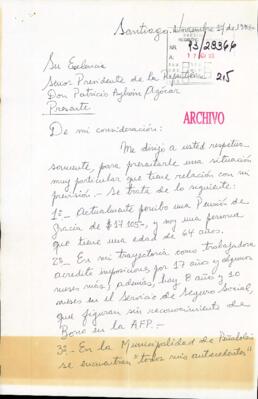 Santiago, Noviembre 17 de 1993
NR. 93/28366
A: 17 NOV 93
215
Su Excelencia
Señor Presidente de la República
Don Patricio Aylwin Azócar
Presente
ARCHIVO
De mi consideración:
Me dirijo a usted respetuo
samente, para presentarle una situación
muy particular que tiene relación con mi
previsión.- Se trata de lo siguiente:
1º- Actualmente percibo una Pensión de
gracia de $17.105-, y soy una persona
que tiene una edad de 64 años.
2º- En mi trayectoria como trabajadora
acredito imposiciones por 17 años y algunos
meses más, además, hay 8 años y 10
meses en el Servicio de Seguro Social,
que figuran sin reconocimiento de
Bono en la AFP.-
3º- En la Municipalidad de Peñalolén
se encuentran "todos mis antecedentes"